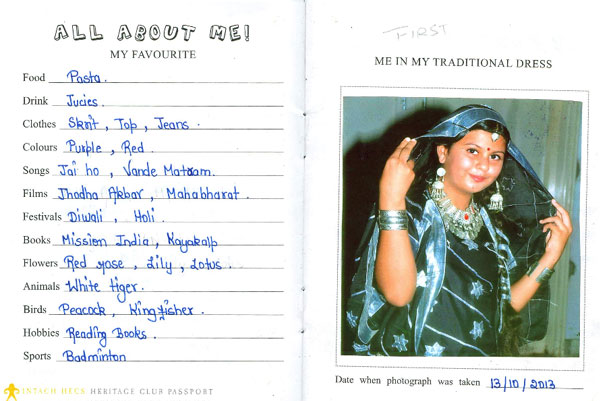 ALL ABOUT ME!
MY FAVOURITE
Food Pasta.
Drink Jucies.
Clothes Skrit, Top, Jeans.
Colours Purple, Red.
Songs Jai ho, Vande Mataram.
Films Jhodha Akbar, Mahabharat.
Festivals Diwali, Holi.
Books Mission India, Kayakalp
Flowers Red rose, Lily, Lotus.
Animals White tiger.
Birds Peacock, Kingfisher.
Hobbies Reading Books.
Sports Badminton
INTACH HECS HERITAGE CLUB PASSPORT
FIRST
ME IN MY TRADITIONAL DRESS
Date when photograph was taken 13/10/2013